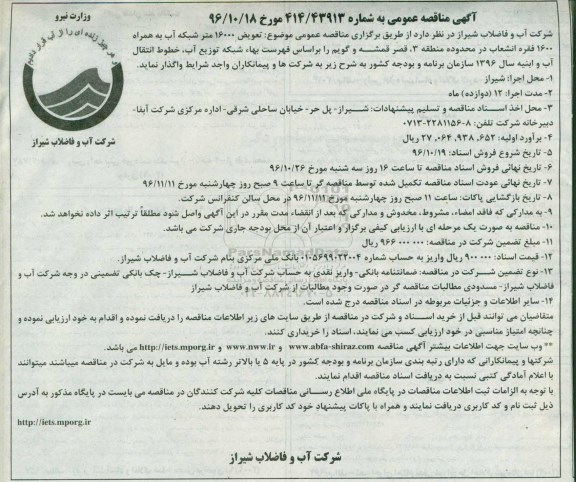 آگهی مناقصه عمومی به شماره ۴۱۴/۴۳۹۱۳ مورخ ۹۶/۱۰/۱۸
وزارت نیرو
شرکت آب و فاضلاب شیراز در نظر دارد از طریق برگزاری مناقصه عمومی موضوع: تعویض ۱۶۰۰۰ متر شبکه آب به همراه
۱۶۰۰ فقره انشعاب در محدوده منطقه ۳، قصر قمشه و گویم را براساس فهرست بهاء شبکه توزیع آب، خطوط انتقال
آب و ابنیه سال ۱۳۹۶ سازمان برنامه و بودجه کشور به شرح زیر به شرکت ها و پیمانکاران واجد شرایط واگذار نماید.
۱- محل اجرا: شیراز
۲- مدت اجرا: ۱۲ (دوازده) ماه
۳- محل اخذ اسناد مناقصه و تسلیم پیشنهادات: شیراز- پل حر- خیابان ساحلی شرقی- اداره مرکزی شرکت آبفا-
دبیرخانه شرکت تلفن: ۸-۲۲۸۱۱۵۶-۰۷۱۳
شرکت آب و فاضلاب شیراز
۴- برآورد اولیه: ۲۷,۰۶۴,۹۳۸,۶۵۲ ریال
۵- تاریخ شروع فروش اسناد: ۹۶/۱۰/۱۹
۶- تاریخ نهائی فروش اسناد مناقصه تا ساعت ۱۶ روز سه شنبه مورخ ۹۶/۱۰/۲۶
۷- تاریخ نهائی عودت اسناد مناقصه تکمیل شده توسط مناقصه گر تا ساعت ۹ صبح روز چهارشنبه مورخ ۹۶/۱۱/۱۱
۸- تاریخ بازگشایی پاکات: ساعت ۱۱ صبح روز چهارشنبه مورخ ۹۶/۱۱/۱۱ در محل سالن کنفرانس شرکت.
۹- به مدارکی که فاقد امضاء، مشروط، مخدوش و مدارکی که بعد از انقضاء مدت مقرر در این آگهی واصل شود مطلقاً ترتیب اثر داده نخواهد شد.
۱۰- مناقصه به صورت یک مرحله ای با ارزیابی کیفی برگزار و اعتبار آن از محل بودجه جاری شرکت می باشد.
۱۱- مبلغ تضمین شرکت در مناقصه: ۹۶۶ ۰۰۰ ۰۰۰ ریال
۱۲- قیمت اسناد: ۹۰۰ ۰۰۰ ریال واریز به حساب شماره ۰۱۰۵۶۹۹۰۲۲۰۰۴ بانک ملی مرکزی بنام شرکت آب و فاضلاب شیراز.
۱۳- نوع تضمین شرکت در مناقصه: ضمانتنامه بانکی- واریز نقدی به حساب شرکت آب و فاضلاب شیراز- چک بانکی تضمینی در وجه شرکت آب و
فاضلاب شیراز- مسدودی مطالبات مناقصه گر در صورت وجود مطالبات از شرکت آب و فاضلاب شیراز
۱۴- سایر اطلاعات و جزئیات مربوطه در اسناد مناقصه درج شده است.
متقاضیان می توانند قبل از خرید اسناد و شرکت در مناقصه از طریق سایت های زیر اطلاعات مناقصه را دریافت نموده و اقدام به خود ارزیابی نموده و
چنانچه امتیاز مناسبی در خود ارزیابی کسب می نمایند، اسناد را خریداری کنند.
** وب سایت جهت اطلاعات بیشتر آگهی مناقصه www.abfa-shiraz.com و www.nww.ir و http://iets.mporg.ir می باشد.
شرکتها و پیمانکارانی که دارای رتبه بندی سازمان برنامه و بودجه کشور در پایه ۵ یا بالاتر رشته آب بوده و مایل به شرکت در مناقصه میباشند میتوانند
با اعلام آمادگی کتبی نسبت به دریافت اسناد مناقصه اقدام نمایند.
با توجه به الزامات ثبت اطلاعات مناقصات در پایگاه ملی اطلاع رسانی مناقصات کلیه شرکت کنندگان در مناقصه می بایست در پایگاه مذکور به آدرس
ذیل ثبت نام و کد کاربری دریافت نمایند و همراه با پاکات پیشنهاد خود کد کاربری را تحویل دهند.
http://iets.mporg.ir
شرکت آب و فاضلاب شیراز